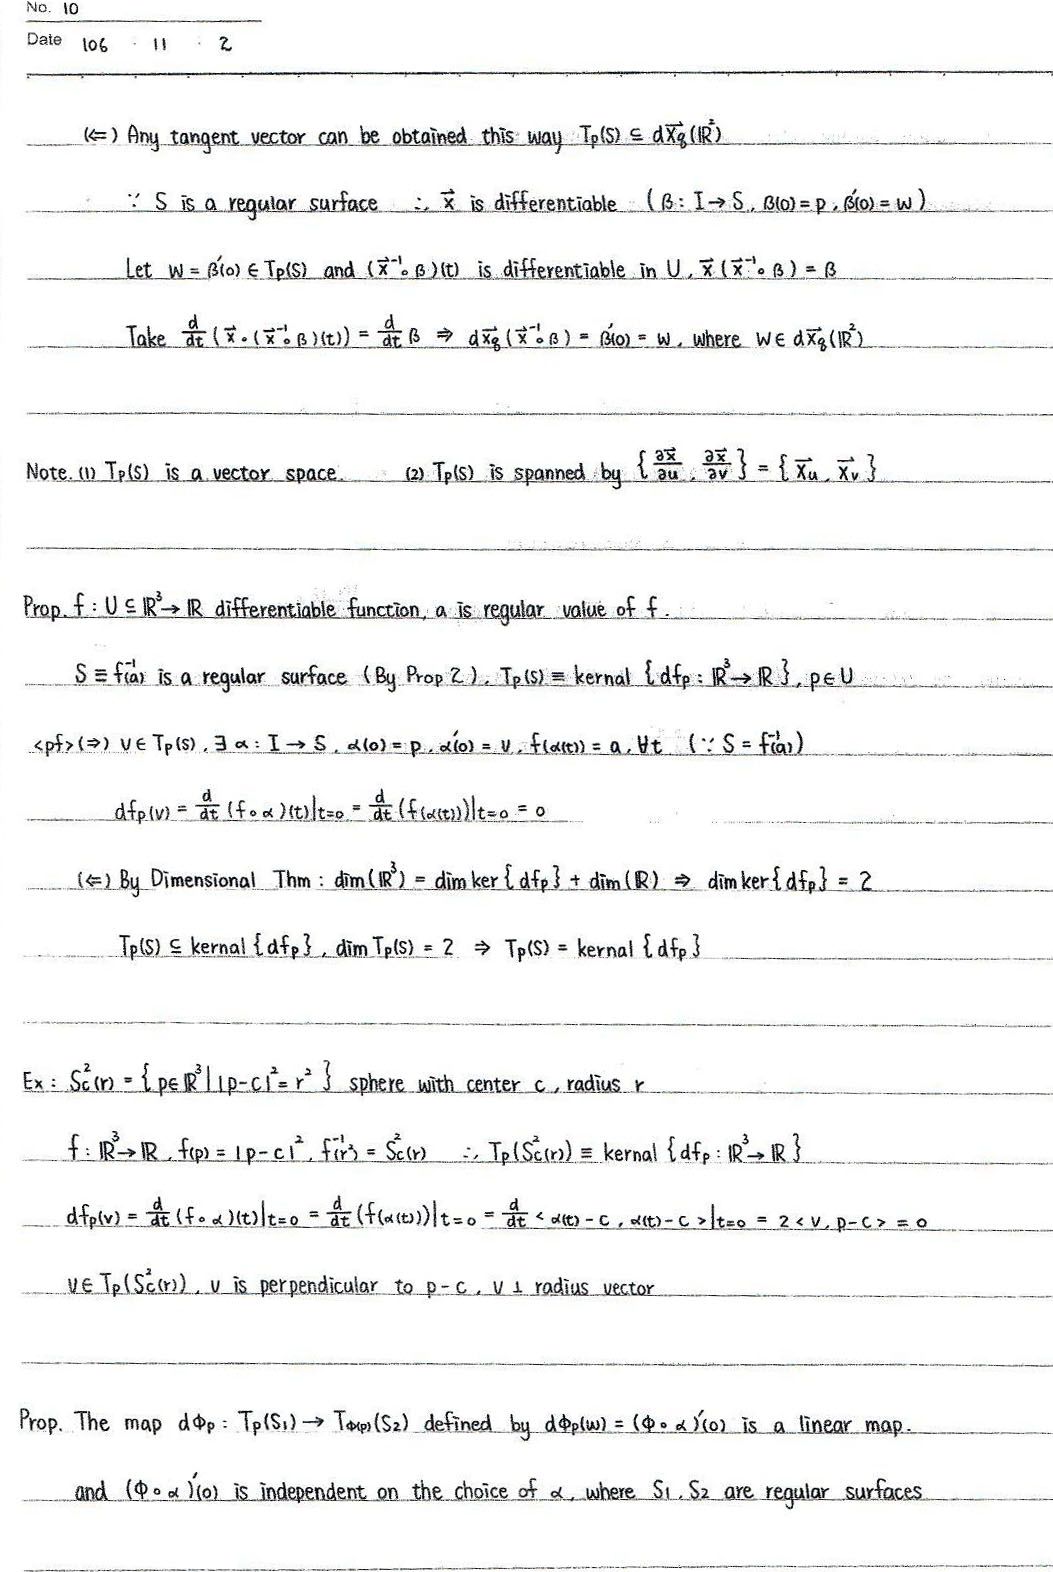 No. 10
Date 106 . 11 . 2
(⇐) Any tangent vector can be obtained this way Tp(S) ⊆ dx⃗q(ℝ²)
∵ S is a regular surface ∴ x⃗ is differentiable (β : I → S, β(0) = p, β'(0) = w)
Let w = β'(0) ∈ Tp(S) and (x⃗⁻¹∘β)(t) is differentiable in U, x⃗(x⃗⁻¹∘β) = β
Take d/dt (x⃗∘(x⃗⁻¹∘β)(t)) = d/dt β ⇒ dx⃗q(x⃗⁻¹∘β) = β'(0) = w, where w ∈ dx⃗q(ℝ²)
Note. (1) Tp(S) is a vector space. (2) Tp(S) is spanned by {∂x⃗/∂u, ∂x⃗/∂v} = {x⃗u, x⃗v}
Prop. f : U ⊆ ℝ³ → ℝ differentiable function, a is regular value of f.
S ≡ f⁻¹(a) is a regular surface (By Prop 2), Tp(S) ≡ kernal {dfp : ℝ³ → ℝ}, p ∈ U
<pf> (⇒) v ∈ Tp(S), ∃ α : I → S, α(0) = p, α'(0) = v, f(α(t)) = a, ∀t (∵ S = f⁻¹(a))
dfp(v) = d/dt (f∘α)(t)|t=0 = d/dt (f(α(t)))|t=0 = 0
(⇐) By Dimensional Thm : dim(ℝ³) = dim ker{dfp} + dim(ℝ) ⇒ dim ker{dfp} = 2
Tp(S) ⊆ kernal {dfp}, dim Tp(S) = 2 ⇒ Tp(S) = kernal {dfp}
Ex : S²c(r) = {p∈ℝ³ | |p-c|² = r²} sphere with center c, radius r
f : ℝ³ → ℝ, f(p) = |p-c|², f⁻¹(r²) = S²c(r) ∴ Tp(S²c(r)) ≡ kernal {dfp : ℝ³ → ℝ}
dfp(v) = d/dt (f∘α)(t)|t=0 = d/dt (f(α(t)))|t=0 = d/dt <α(t)-c, α(t)-c>|t=0 = 2<v, p-c> = 0
v ∈ Tp(S²c(r)), v is perpendicular to p-c, v ⊥ radius vector
Prop. The map dΦp : Tp(S1) → TΦ(p)(S2) defined by dΦp(w) = (Φ∘α)'(0) is a linear map.
and (Φ∘α)'(0) is independent on the choice of α, where S1, S2 are regular surfaces